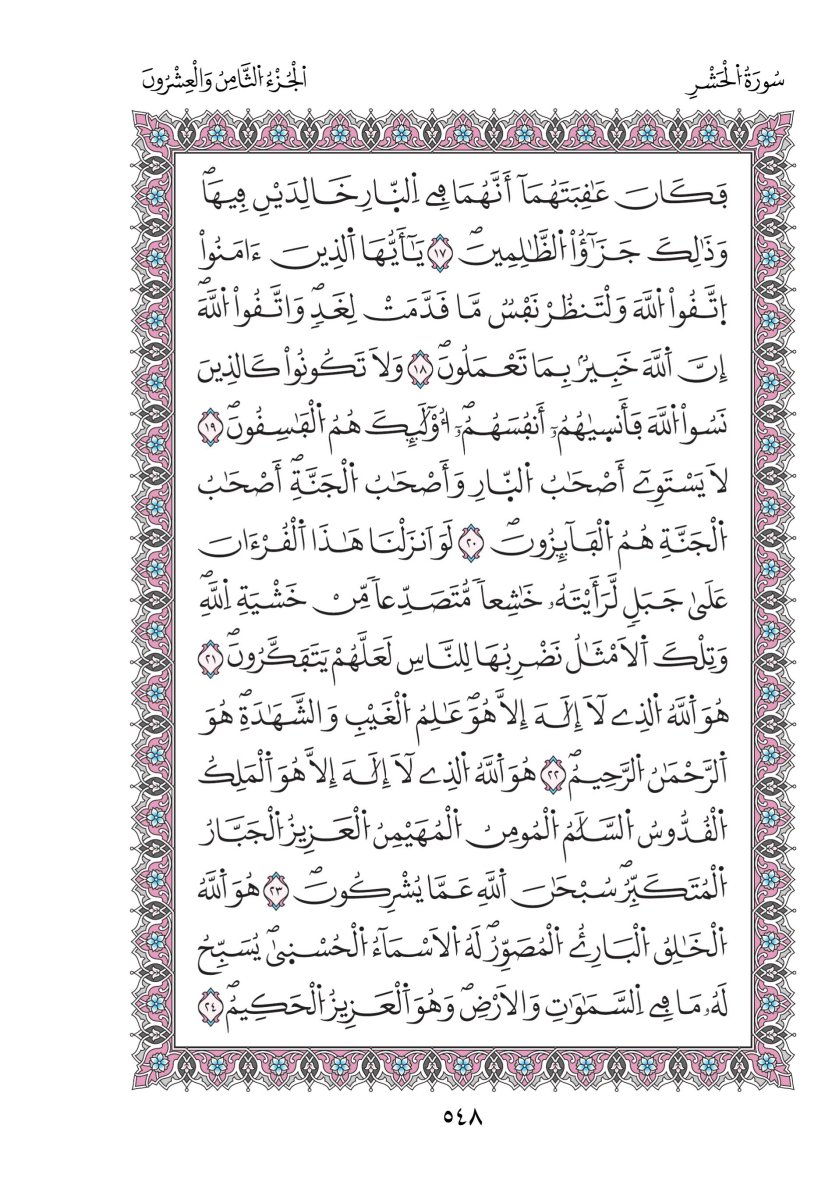 سُورَةُ اُ۬لْحَشْرِ
اَ۬لْجُزْءُ اُ۬لثَّامِنُ وَالْعِشْرُونَ
فَكَانَ عَٰقِبَتَهُمَآ أَنَّهُمَا فِے اِ۬لنّ۪ارِ خَٰلِدَيْنِ فِيهَاۖ
وَذَٰلِكَ جَزَٰٓؤُاْ اُ۬لظَّٰلِمِينَۖ ١٧ يَٰٓأَيُّهَا اَ۬لذِينَ ءَامَنُواْ
اُ۪تَّقُواْ اُ۬للَّهَ وَلْتَنظُرْ نَفْسٌ مَّا قَدَّمَتْ لِغَدٖۖ وَاتَّقُواْ اُ۬للَّهَۖ
إِنَّ اَ۬للَّهَ خَبِيرُۢ بِمَا تَعْمَلُونَۖ ١٨ وَلَا تَكُونُواْ كَالذِينَ
نَسُواْ اُ۬للَّهَ فَأَنس۪يٰهُمُۥٓ أَنفُسَهُمُۥٓۖ أُوْلَٰٓئِكَ هُمُ اُ۬لْفَٰسِقُونَۖ ١٩
لَا يَسْتَوِےٓ أَصْحَٰبُ اُ۬لنّ۪ارِ وَأَصْحَٰبُ اُ۬لْجَنَّةِۖ أَصْحَٰبُ
اُ۬لْجَنَّةِ هُمُ اُ۬لْفَآئِزُونَۖ ٢٠ لَوَ اَنزَلْنَا هَٰذَا اَ۬لْقُرْءَانَ
عَلَىٰ جَبَلٖ لَّرَأَيْتَهُۥ خَٰشِعاٗ مُّتَصَدِّعاٗ مِّنْ خَشْيَةِ اِ۬للَّهِۖ
وَتِلْكَ اَ۬لَامْثَٰلُ نَضْرِبُهَا لِلنَّاسِ لَعَلَّهُمْ يَتَفَكَّرُونَۖ ٢١
هُوَ اَ۬للَّهُ اُ۬لذِے لَآ إِلَٰهَ إِلَّا هُوَۖ عَٰلِمُ اُ۬لْغَيْبِ وَالشَّهَٰدَةِۖ هُوَ
اَ۬لرَّحْمَٰنُ اُ۬لرَّحِيمُۖ ٢٢ هُوَ اَ۬للَّهُ اُ۬لذِے لَآ إِلَٰهَ إِلَّا هُوَ اَ۬لْمَلِكُ
اُ۬لْقُدُّوسُ اُ۬لسَّلَٰمُ اُ۬لْمُومِنُ اُ۬لْمُهَيْمِنُ اُ۬لْعَزِيزُ اُ۬لْجَبَّارُ
اُ۬لْمُتَكَبِّرُۖ سُبْحَٰنَ اَ۬للَّهِ عَمَّا يُشْرِكُونَۖ ٢٣ هُوَ اَ۬للَّهُ
اُ۬لْخَٰلِقُ اُ۬لْبَارِئُ اُ۬لْمُصَوِّرُۖ لَهُ اُ۬لَاسْمَآءُ اُ۬لْحُسْن۪يٰۖ يُسَبِّحُ
لَهُۥ مَا فِے اِ۬لسَّمَٰوَٰتِ وَالَارْضِۖ وَهُوَ اَ۬لْعَزِيزُ اُ۬لْحَكِيمُۖ ٢٤
٥٤٨